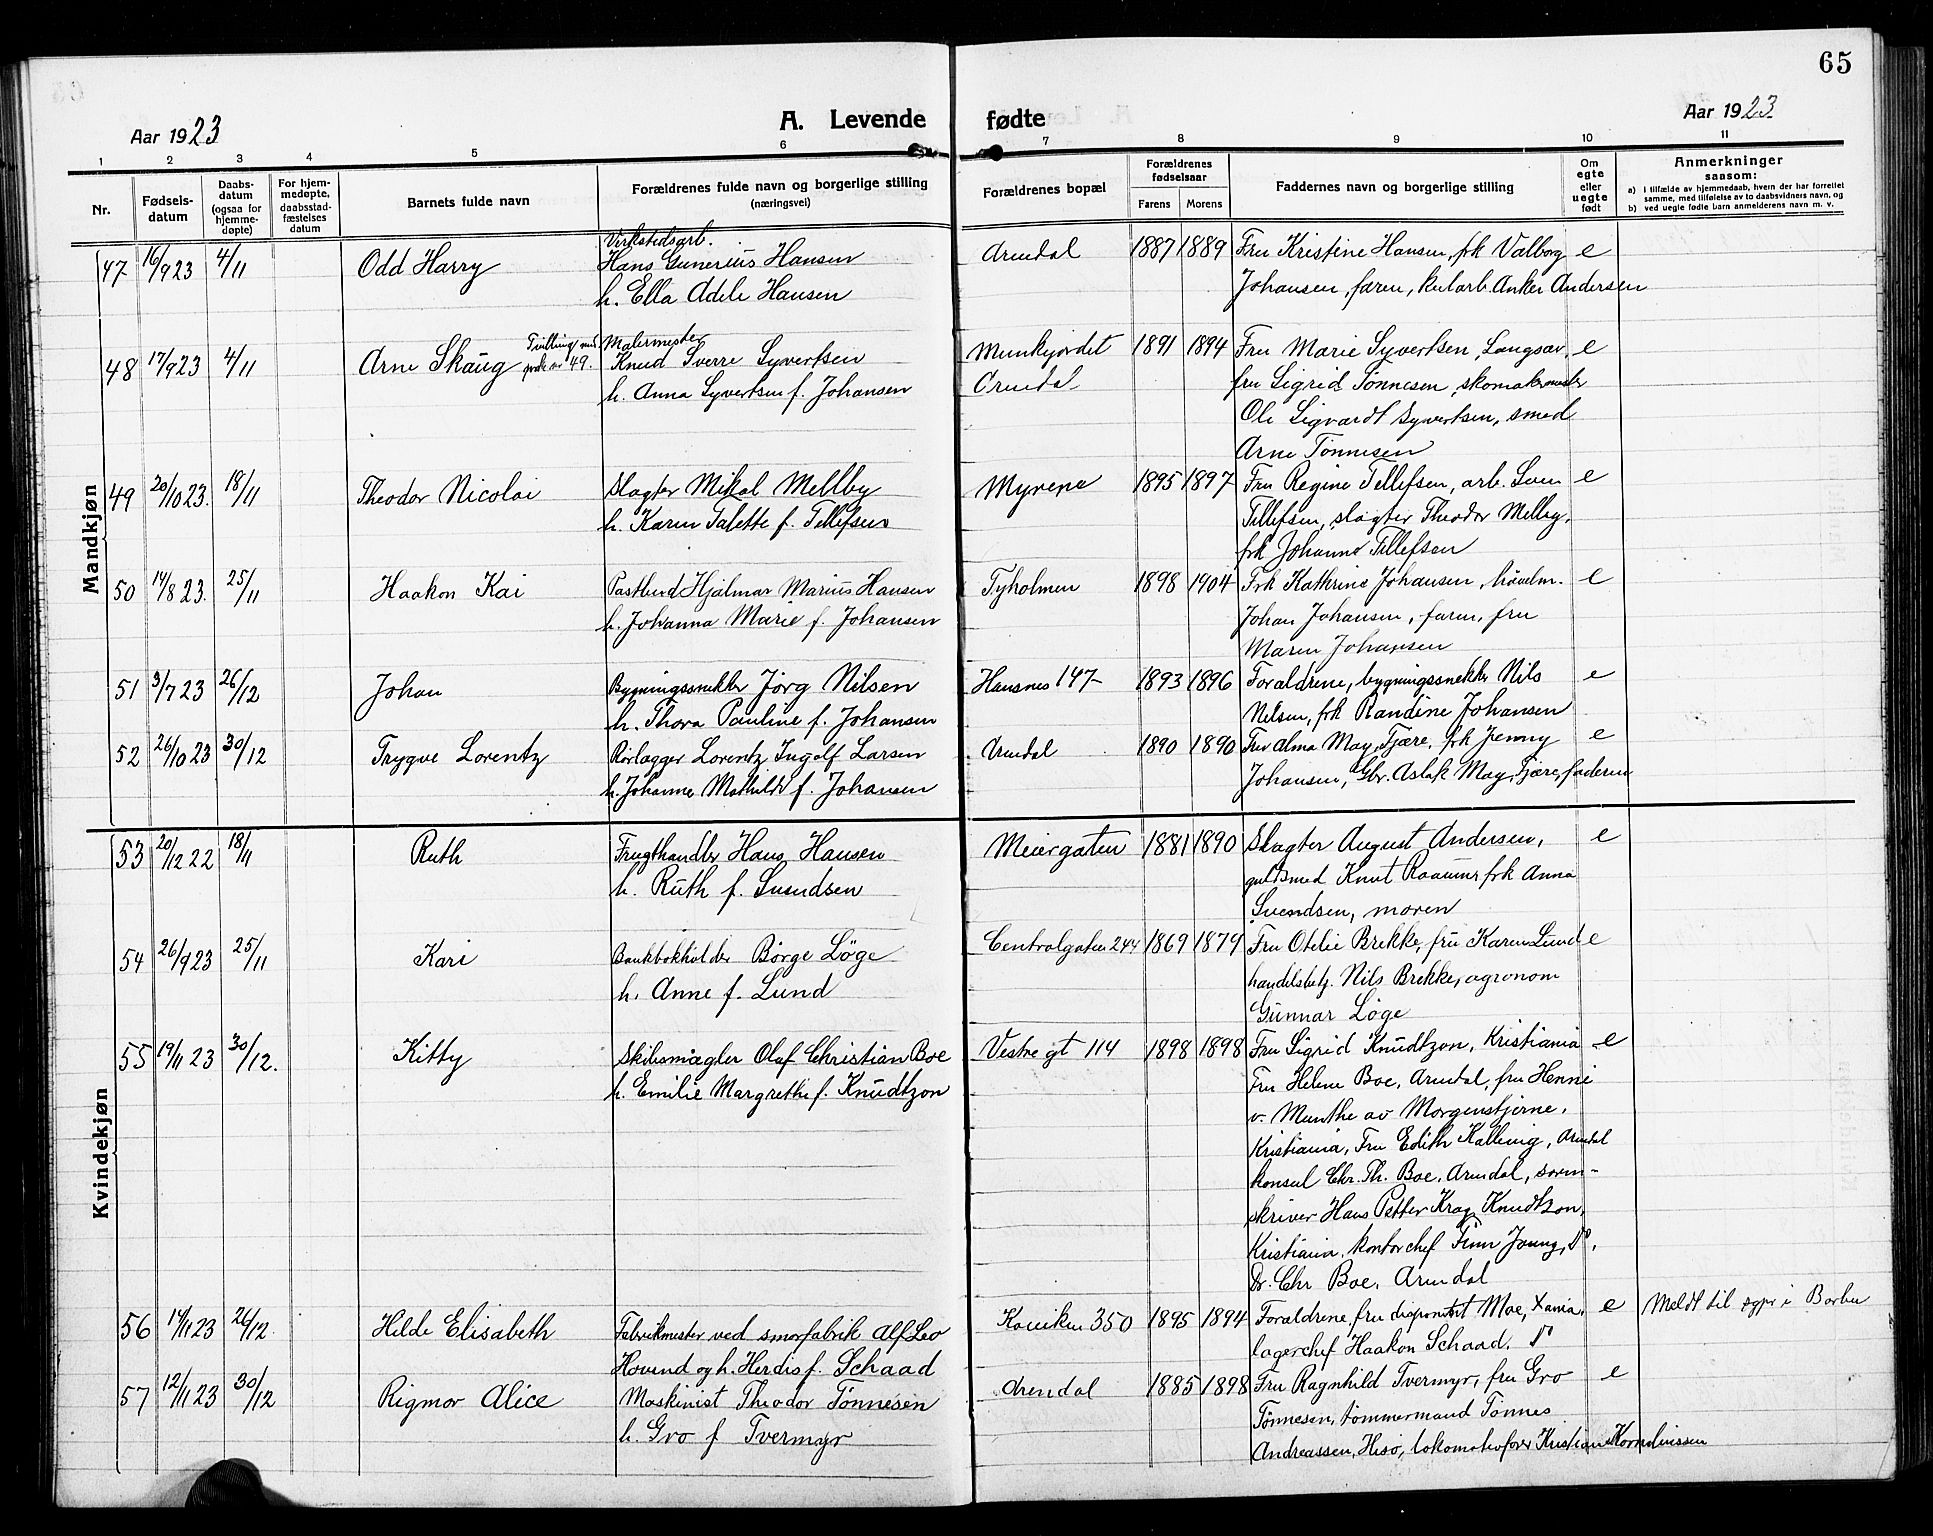 65
Aar 1923
A. Levende fødte
Aar 1923
1 2 3 4 5 6 7 8 9 10 11
Nr.
Fødsels-
datum
Daabs-
datum
(ogsaa for
hjemme-
døpte)
For hjem-
medøpte,
daabsstad-
fæstelses
datum
Barnets fulde navn
Forældrenes fulde navn og borgerlige stilling
(næringsvei)
Forældrenes bopæl
Forældrenes
fødselsaar
Farens Morens
Faddernes navn og borgerlige stilling
Om
egte
eller
uegte
født
Anmerkninger
saasom:
a) i tilfælde av hjemmedaab, hvem der har forrettet
samme, med tilføielse av to daabsvidners navn, og
b) ved uegte fødte barn anmelderens navn m. v.
Mandkjøn
Virkstedsarb.
47 16/9 23 4/11 Odd Harry Hans Gunerius Hansen Arendal 1887 1889 Fru Kristine Hansen, frk Valborg e
h. Ella Adele Hansen Johansen, faren, kularb. Anker Andersen
Tvilling med Malermester
48 17/9 23 4/11 Arne Skaug 49. Knud Sverre Syvertsen Munkejordet 1891 1894 Fru Marie Syvertsen, Langsæv, e
h. Anna Syvertsen f. Johansen Arendal fru Sigrid Tønnesen, skomakermester
Ole Sigvardt Syvertsen, smed
Arne Tønnesen
49 20/10 23. 18/11 Theodor Nicolai Slagter Mikal Mellby Myrene 1895 1897 Fru Regine Tellefsen, arb. Sven e
h. Karen Talette f. Tellefsen Tellefsen, slagter Theodor Melby,
frk Johanne Tellefsen
50 14/8 23. 25/11 Haakon Kai Postbud Hjalmar Marius Hansen Tyholmen 1898 1904 Frk Kathrine Johansen, høvelm. e
h. Johanna Marie f. Johansen Johan Johansen, faren, fru
Maren Johansen
51 3/7 23 26/12 Johan Bygningssnekker Jørg Nilsen Hausnes 147 1893 1896 Forældrene, bygningssnekker Nils e
h. Thora Pauline f. Johansen Nilsen, frk Randine Johansen
52 26/10 23 30/12 Trygve Lorentz Rørlægger Lorentz Ingolf Larsen Arendal 1890 1890 Fru Alma May, Fjære, frk Jenny e
h. Johanne Mathilde f. Johansen Johansen, Gbr. Aslak May, Fjære, faderen
Kvindekjøn
53 20/12 22 18/11 Ruth Frugthandler Hans Hansen Meiergaten 1881 1890 Slagter August Andersen, e
h. Ruth f. Svendsen guldsmed Knut Raaum, frk Anna
Svendsen, moren
54 26/9 23 25/11 Kari Bankbokholder Børge Løge Centralgaten 244 1869 1879 Fru Otelie Brekke, fru Karen Lund e
h. Anne f. Lund handelsbetj. Nils Brekke, agronom
Gunnar Løge
55 19/11 23 30/12. Kitty Skibsmægler Olaf Christian Boe Vestre gt 114 1898 1898 Fru Sigrid Knudtzon, Kristiania e
h. Emilie Margrethe f. Knudtzon Fru Helene Boe, Arendal, fru Henni
v. Munthe av Morgenstjerne,
Kristiania, Fru Edith Kallevig, Arendal
konsul Chr. Th. Boe, Arendal, soren-
skriver Hans Petter Krag Knudtzon,
Kristiania, kontorchef Finn Young, do,
Dr. Chr Boe, Arendal
56 14/11 23 26/12. Hilde Elisabeth Fabrikmester ved smørfabrik Alf Leo 350 1895 1894 Forældrene, fru disponent Moe, Xania, e Meldt til sgpr i Barbu
Hovind og h. Herdis f. Schaad lagerchef Haakon Schaad, do
57 12/11 23 30/12 Rigmor Alice Maskinist Theodor Tønnesen Arendal 1885 1898 Fru Ragnhild Tvermyr, fru Gro e
h. Gro f Tvermyr Tønnesen, tømmermand Tønnes
Andreassen, Hisø, lokomotivfører Kristian Korneliussen